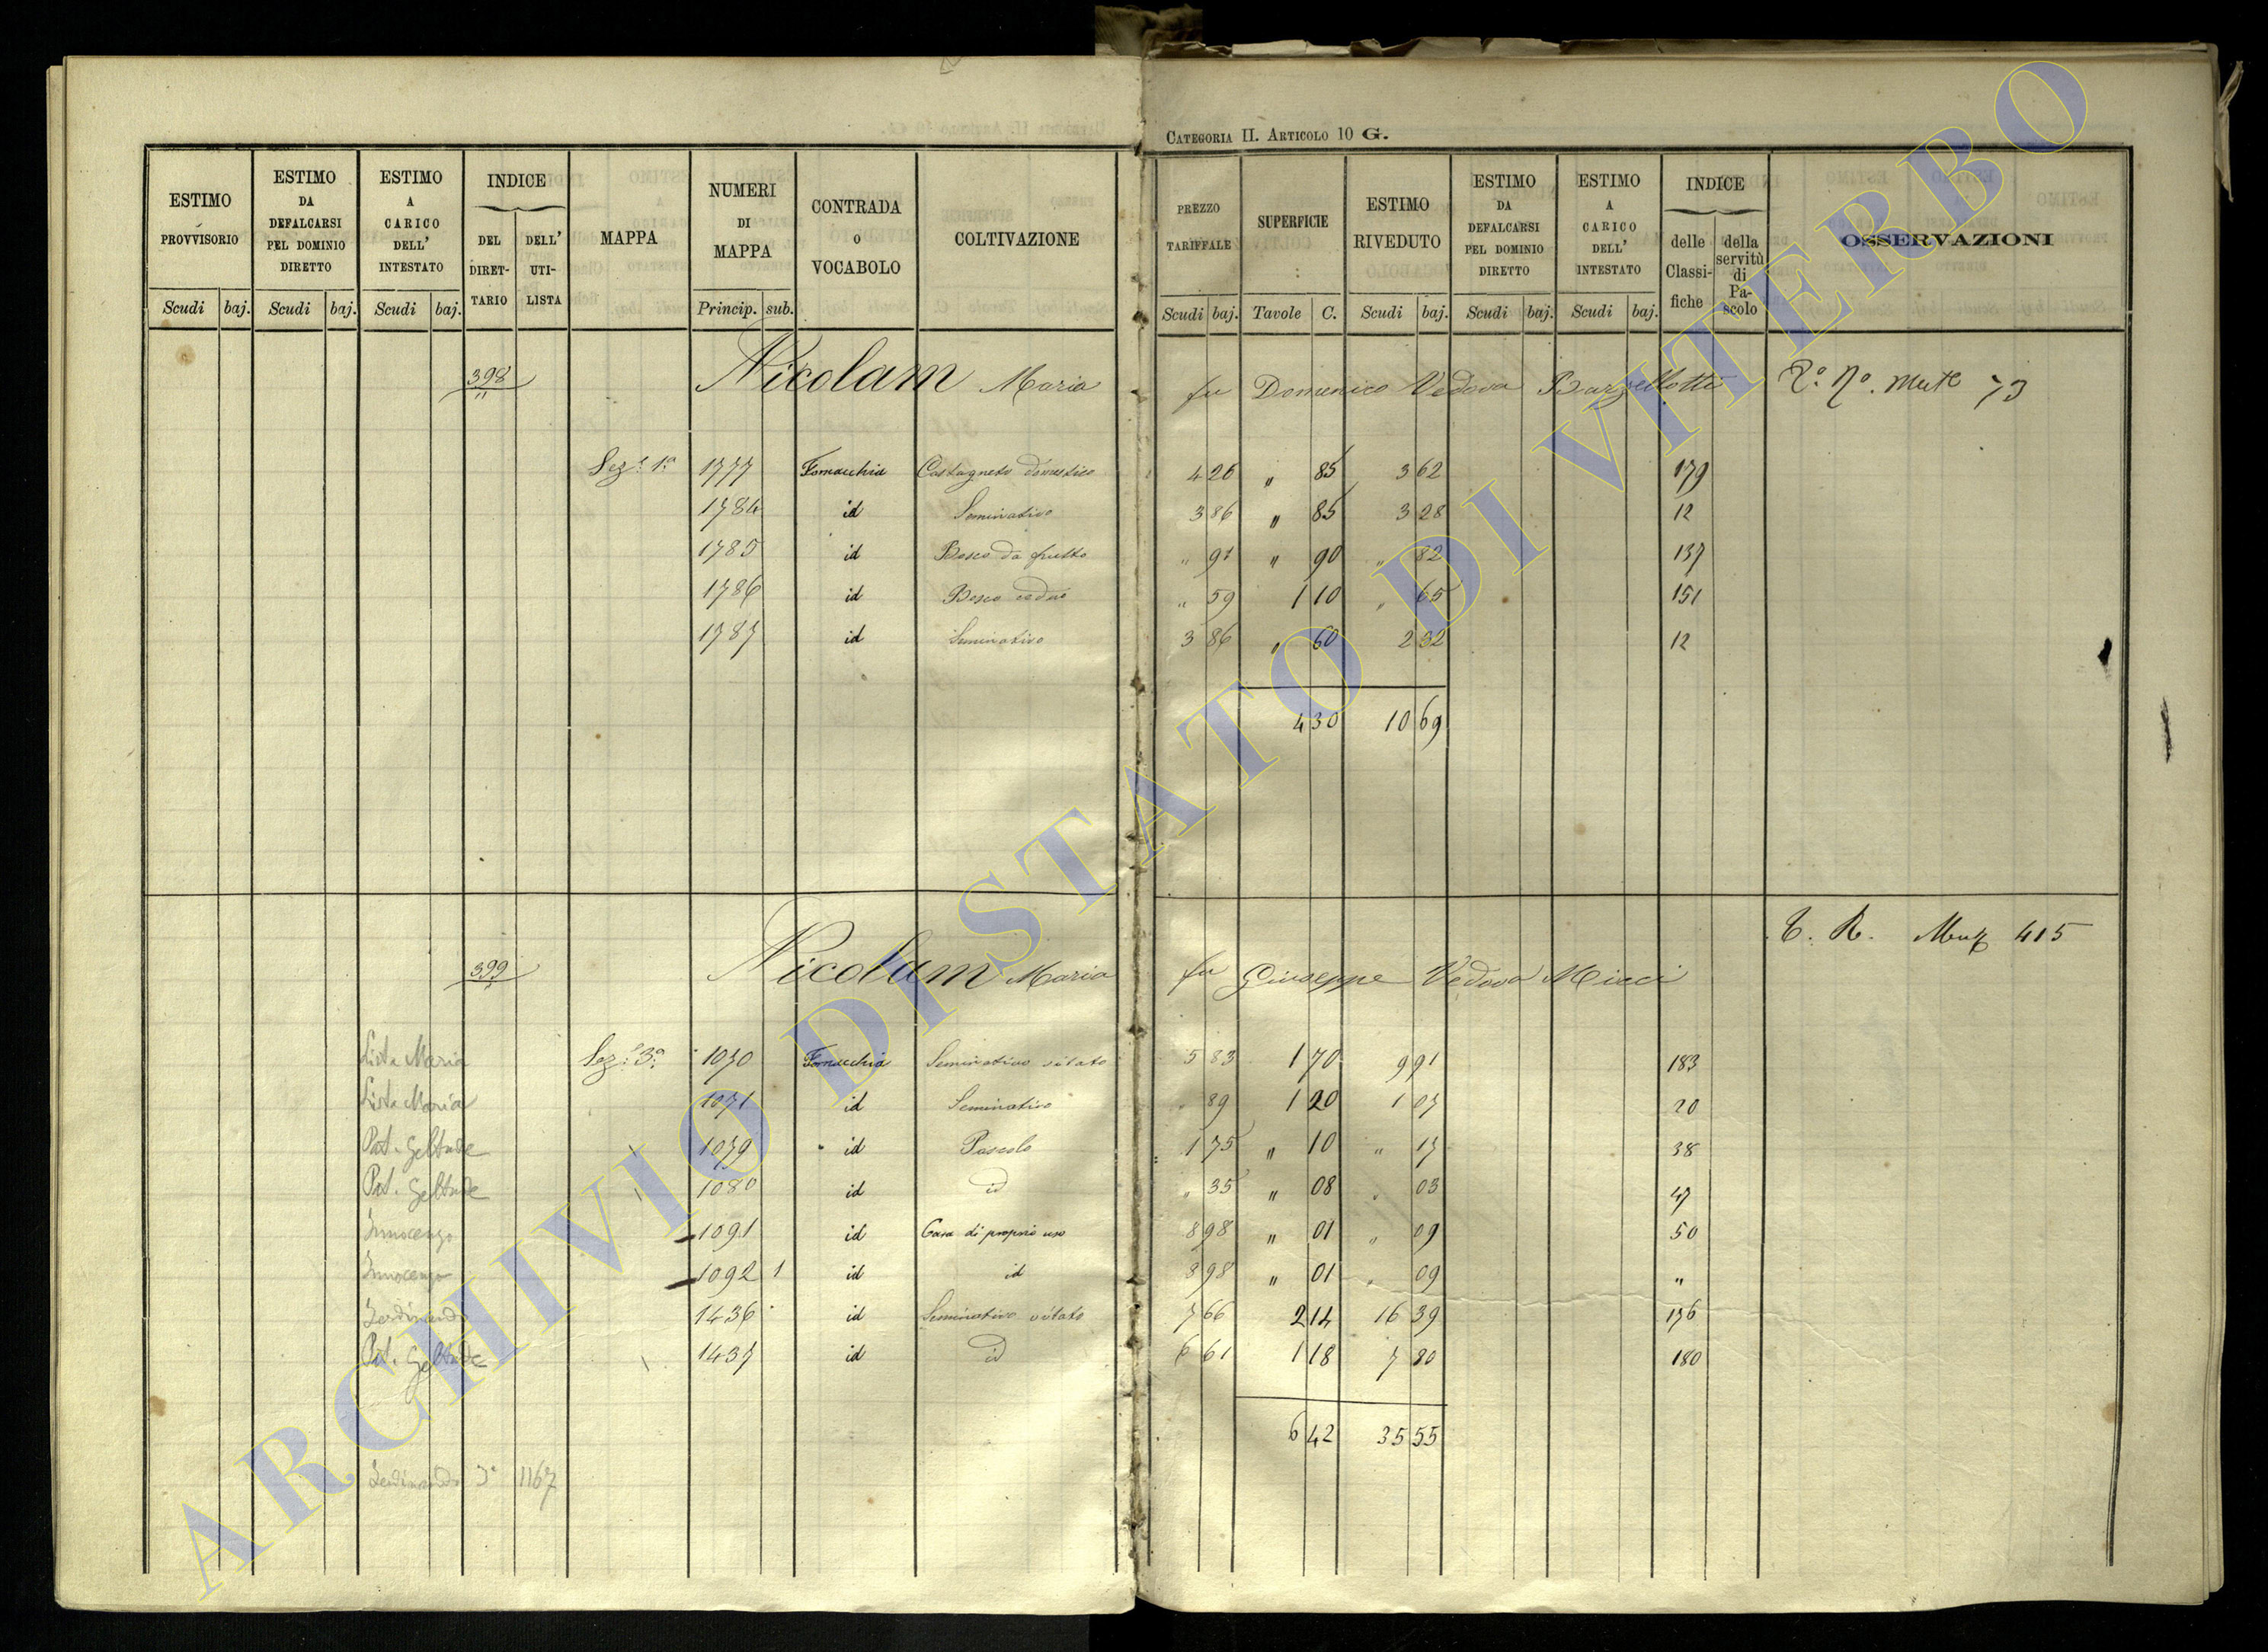 CATEGORIA II. ARTICOLO 10 G.
ESTIMO PROVVISORIO Scudi baj.
ESTIMO DA DEFALCARSI PEL DOMINIO DIRETTO Scudi baj.
ESTIMO A CARICO DELL' INTESTATO Scudi baj.
INDICE DEL DIRETTARIO DELL' UTILISTA
MAPPA
NUMERI DI MAPPA Princip. sub.
CONTRADA O VOCABOLO
COLTIVAZIONE
PREZZO TARIFFALE Scudi baj.
SUPERFICIE Tavole C.
ESTIMO RIVEDUTO Scudi baj.
ESTIMO DA DEFALCARSI PEL DOMINIO DIRETTO Scudi baj.
ESTIMO A CARICO DELL' INTESTATO Scudi baj.
INDICE delle Classifiche della servitù di Pascolo
OSSERVAZIONI
398 Nicolam Maria fu Domenico Vedova Barzellotti 73
Sez.e 1.a 1777 Fornacchia Castagneto domestico 4 26 " 85 3 62 179
1784 id Seminativo 3 86 " 85 3 28 12
1785 id Bosco da frutto " 91 " 90 " 82 137
1786 id Bosco ceduo " 59 1 10 " 65 151
1787 id Seminativo 3 86 " 60 2 32 12
4 30 10 69
399 Nicolam Maria fu Giuseppe Vedova Micci 415
Lista Maria Sez.e 3.a 1070 Fornacchia Seminativo vitato 5 83 1 70 9 91 183
Lista Maria 1071 id Seminativo " 89 1 20 1 07 20
Pat. Geltrude 1079 id Pascolo 1 75 " 10 " 17 38
Pat. Geltrude 1080 id id " 35 " 08 " 03 47
Innocenzo 1091 id Casa di proprio uso 8 98 " 01 " 09 50
Innocenzo 1092 1 id id 8 98 " 01 " 09 "
Ferdinando 1436 id Seminativo vitato 7 66 2 14 16 39 176
Pat. Geltrude 1437 id id 6 61 1 18 7 80 180
6 42 35 55
Ferdinando 3a 1167
ARCHIVIO DI STATO DI VITERBO